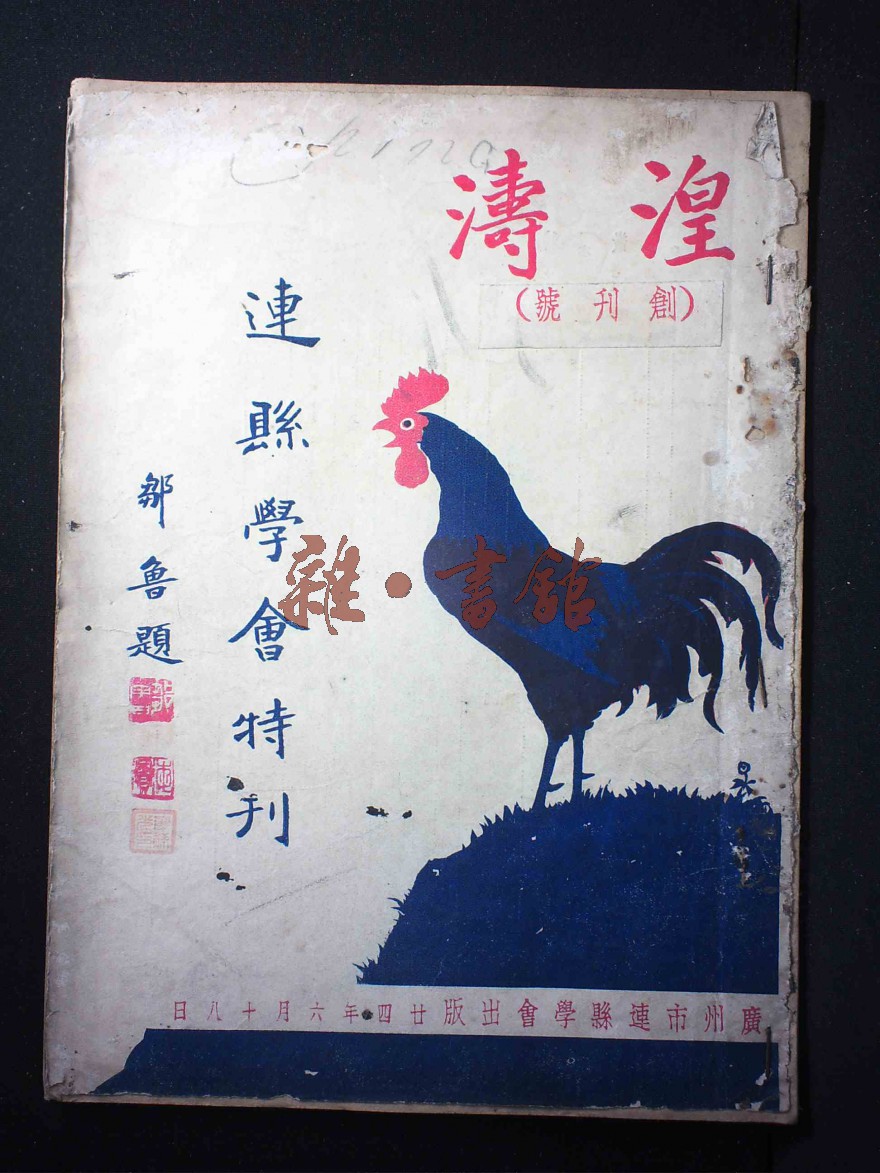 湟濤
(創刊號)
連縣學會特刊
鄒魯題
廣州市連縣學會出版廿四年六月十八日
China
雜·書館